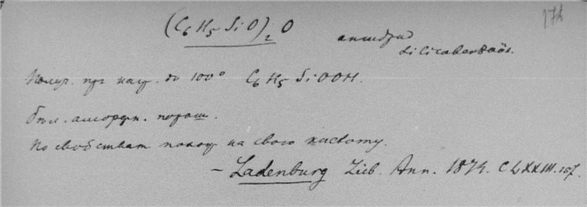 174
(C₆H₅SiO)₂O
ангидрид
Silicobenzoës.
Получ. при наг. до 100° C₆H₅SiOOH.
бѣл. аморфн. порош.
По свойствам похож на свою кислоту.
— Ladenburg Lieb. Ann. 1874. CLXXIII. 107.